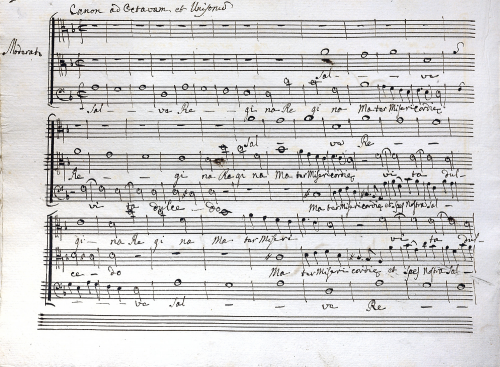 Canon ad Octavam et Unisono
Moderato
Sal - - ve
Sal - - ve Re - - gi na Re gi na Mater Misericordiæ
Sal - - ve Re - -
Re - - gi na Regina Ma ter Misericordiæ vi ta dul-
vi ta dulce - do Mater Misericordiæ et spes nostra Sal -
gi - na Re gi na Ma - ter Miseri vi ta dul-
ce - do Ma - ter Miseri cordiæ et spes nostra Sal -
- - - ve Sal - - - ve Re - -